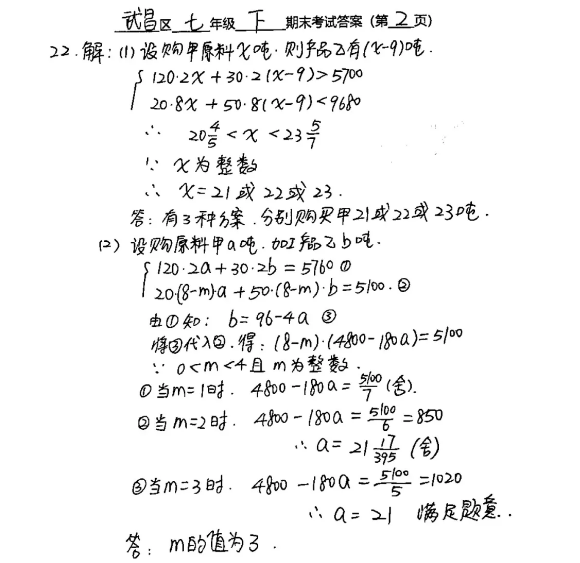 武昌区 七 年级 下 期末考试答案(第2页)
22.解:(1)设购甲原料x吨.则产品乙有(x-9)吨.
{120·2x+30·2(x-9)>5700
20·8x+50·8(x-9)<9680
∴ 20 4/5<x<23 5/7
∵ x为整数
∴ x=21或22或23.
答:有3种方案.分别购买甲21或22或23吨.
(2)设购原料甲a吨.加工产品乙b吨.
{120·2a+30·2b=5760①
20·(8-m)·a+50·(8-m)·b=5100.②
由①知: b=96-4a ③
将③代入②.得:(8-m)·(4800-180a)=5100
∵ 0<m<4且m为整数.
①当m=1时. 4800-180a=5100/7(舍).
②当m=2时. 4800-180a=5100/6=850
∴a=21 17/395 (舍)
③当m=3时. 4800-180a=5100/5=1020
∴a=21 满足题意.
答:m的值为3.